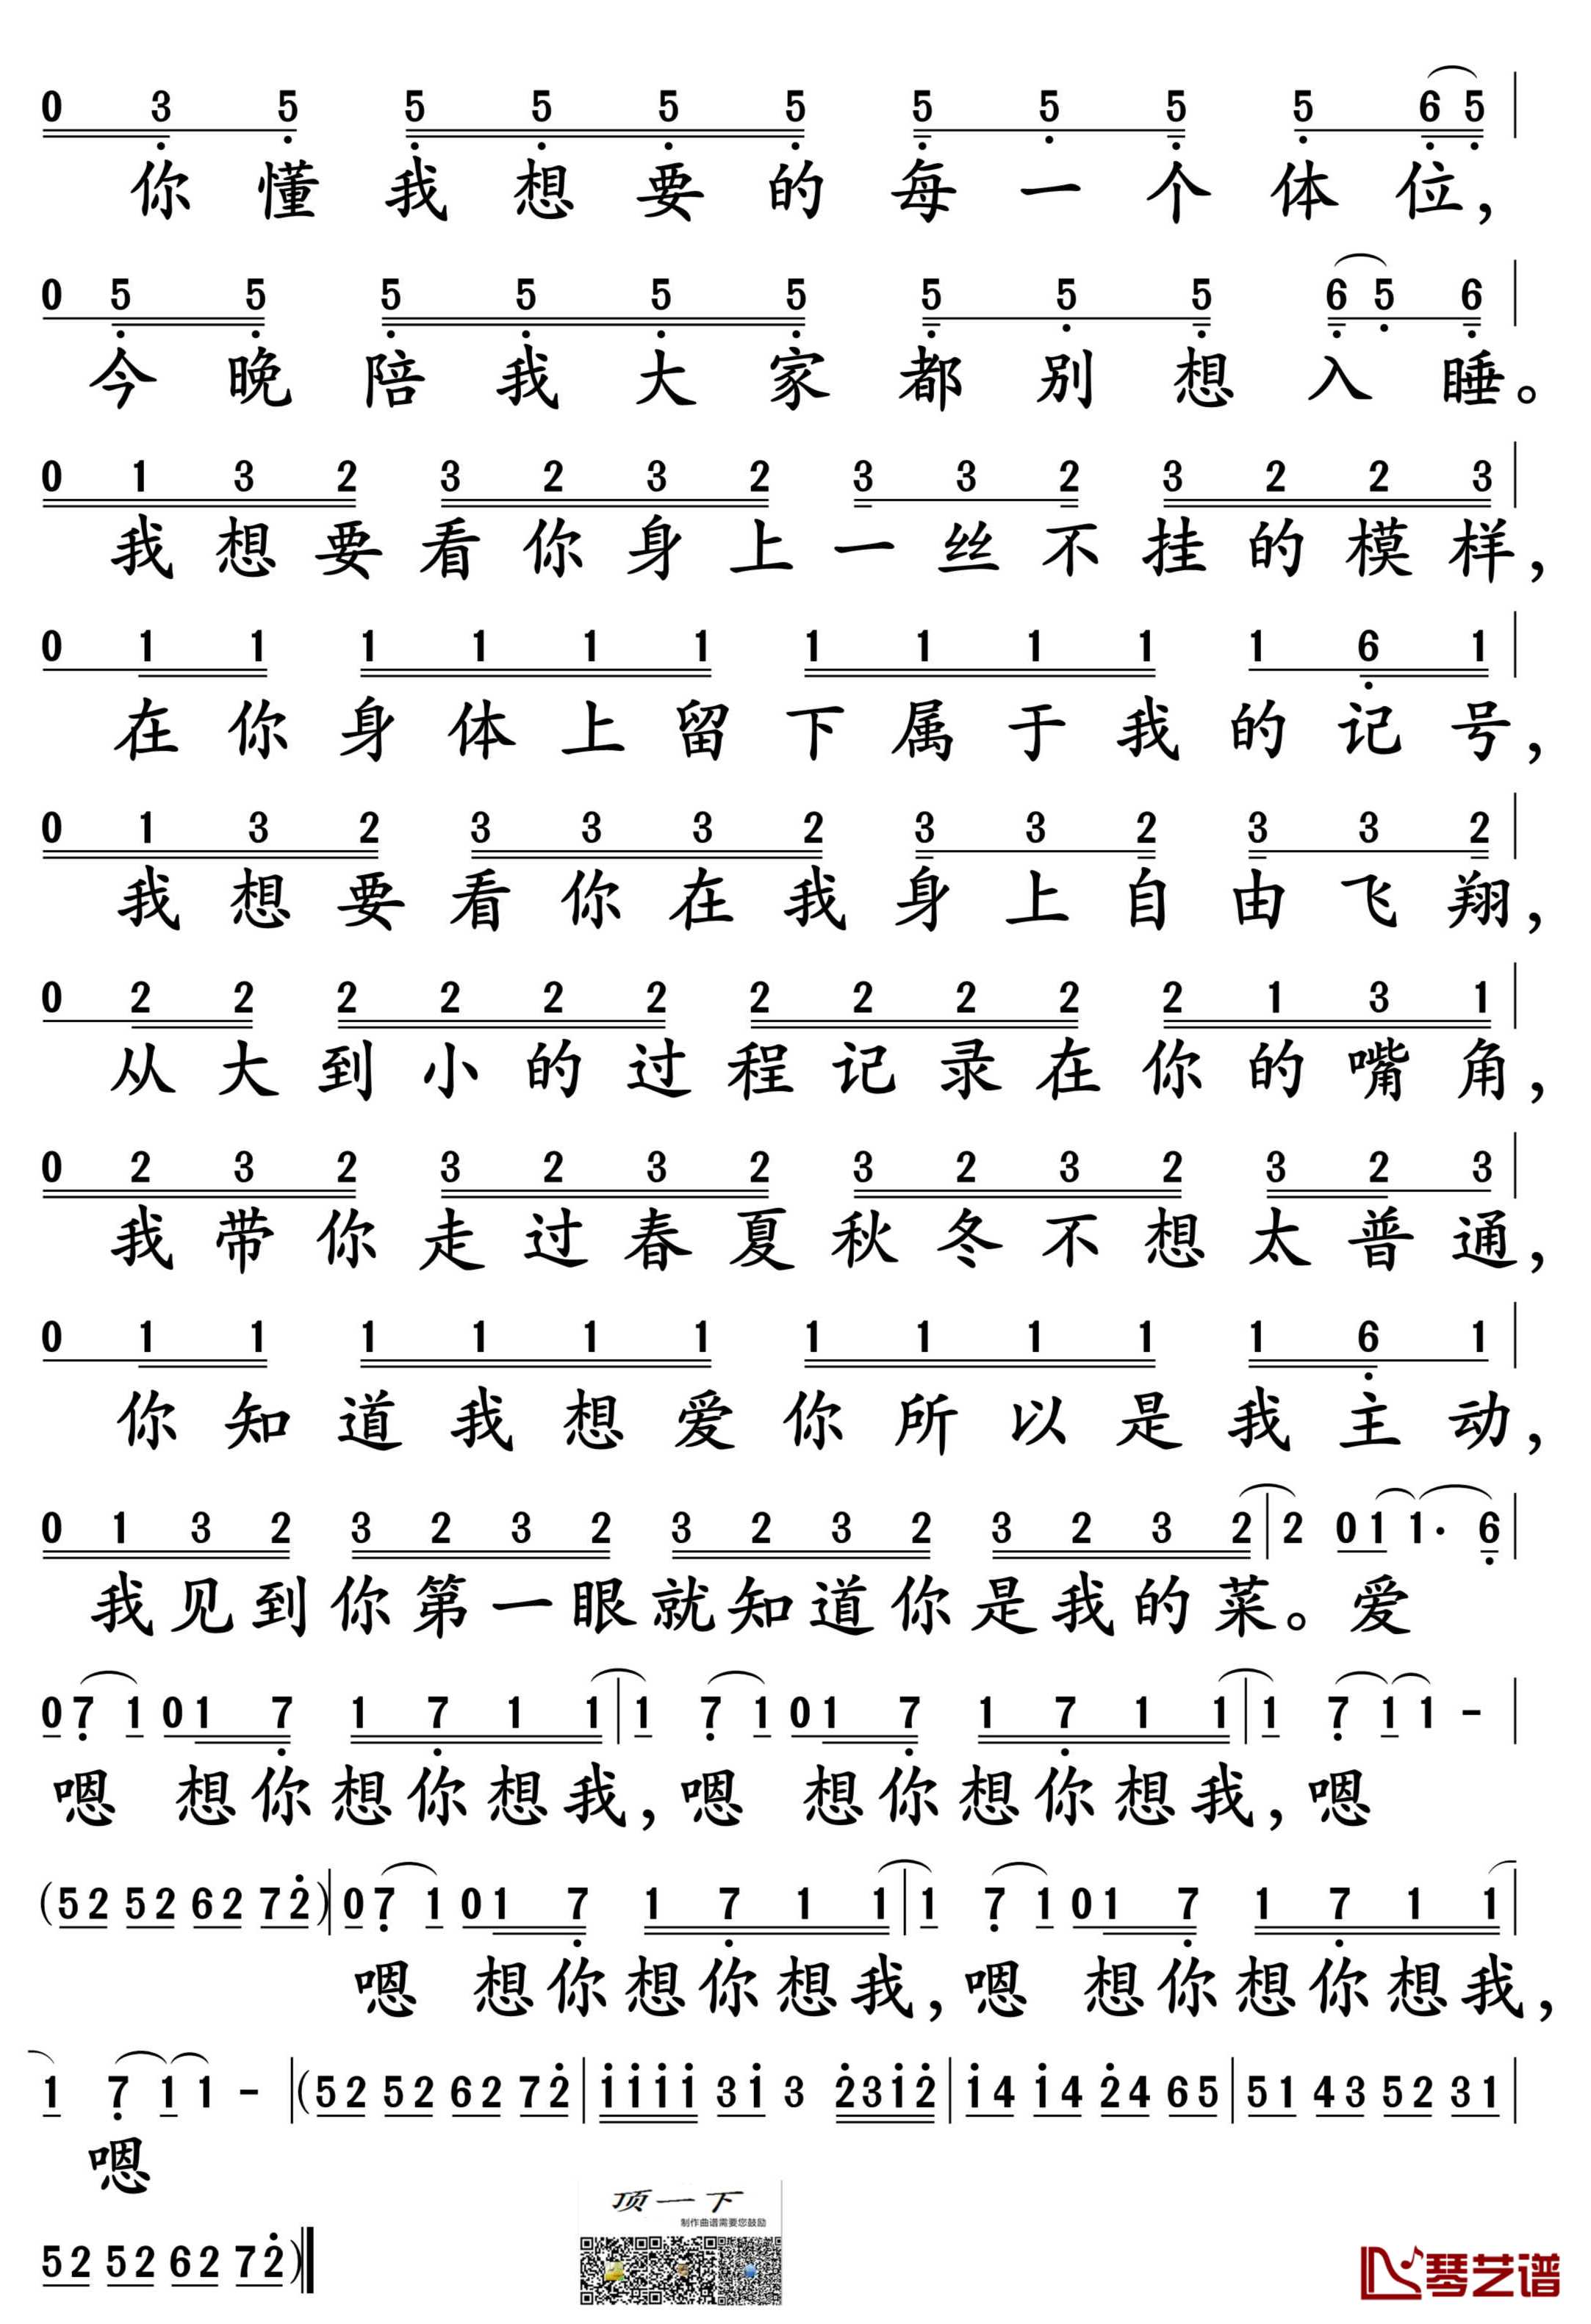 0 3 5 5 5 5 5 5 5 5 5 6 5
你懂我想要的每一个体位，
0 5 5 5 5 5 5 5 5 5 6 5 6
今晚陪我大家都别想入睡。
0 1 3 2 3 2 3 2 3 3 2 3 2 2 3
我想要看你身上一丝不挂的模样，
0 1 1 1 1 1 1 1 1 1 1 1 6 1
在你身体上留下属于我的记号，
0 1 3 2 3 3 3 2 3 3 2 3 3 2
我想要看你在我身上自由飞翔，
0 2 2 2 2 2 2 2 2 2 2 2 1 3 1
从大到小的过程记录在你的嘴角，
0 2 3 2 3 2 3 2 3 2 3 2 3 2 3
我带你走过春夏秋冬不想太普通，
0 1 1 1 1 1 1 1 1 1 1 1 6 1
你知道我想爱你所以是我主动，
0 1 3 2 3 2 3 2 3 2 3 2 3 2 3 2 | 2 0 1 1· 6
我见到你第一眼就知道你是我的菜。爱
0 7 1 0 1 7 1 7 1 1 | 1 7 1 0 1 7 1 7 1 1 | 1 7 1 1 -
嗯 想你想你想我，嗯 想你想你想我，嗯
(52 52 62 72) | 0 7 1 0 1 7 1 7 1 1 | 1 7 1 0 1 7 1 7 1 1
嗯 想你想你想我，嗯 想你想你想我，
1 7 1 1 - | (52 52 62 72 | 1111 31 3 2312 | 14 14 24 65 | 51 43 52 31
嗯
顶一下
制作曲谱需要您鼓励
52 52 62 72)
琴艺谱